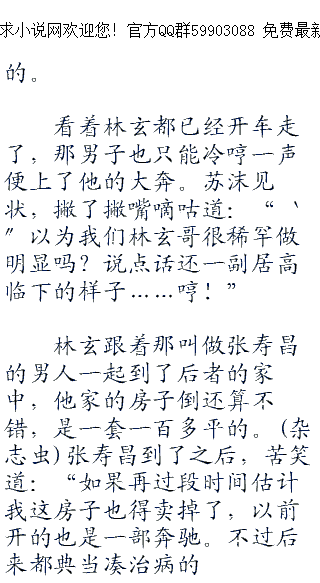 求小说网欢迎您！官方QQ群59903088 免费最新
的。
看着林玄都已经开车走
了，那男子也只能冷哼一声
便上了他的大奔。苏沫见
状，撇了撇嘴嘀咕道：“‵
″以为我们林玄哥很稀罕做
明显吗？说点话还一副居高
临下的样子……哼！”
林玄跟着那叫做张寿昌
的男人一起到了后者的家
中，他家的房子倒还算不
错，是一套一百多平的。(杂
志虫)张寿昌到了之后，苦笑
道：“如果再过段时间估计
我这房子也得卖掉了，以前
开的也是一部奔驰。不过后
来都典当凑治病的